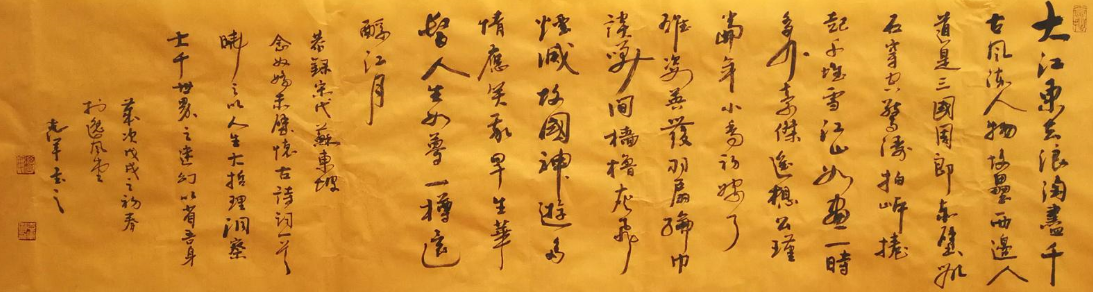 大江東去浪淘盡千
古風流人物故壘西邊人
道是三國周郎赤壁亂
石穿空驚濤拍岸捲
起千堆雪江山如畫一時
多少豪傑遙想公瑾
當年小喬初嫁了
雄姿英發羽扇綸巾
談笑間檣櫓灰飛
煙滅故國神遊多
情應笑我早生華
髮人生如夢一樽還
酹江月
恭錄宋代蘇東坡
念奴嬌赤壁懷古詩詞一首
曉之以人生大哲理洞察
大千世界之迷幻以省吾身
歲次戊戌之初春
於逸風堂